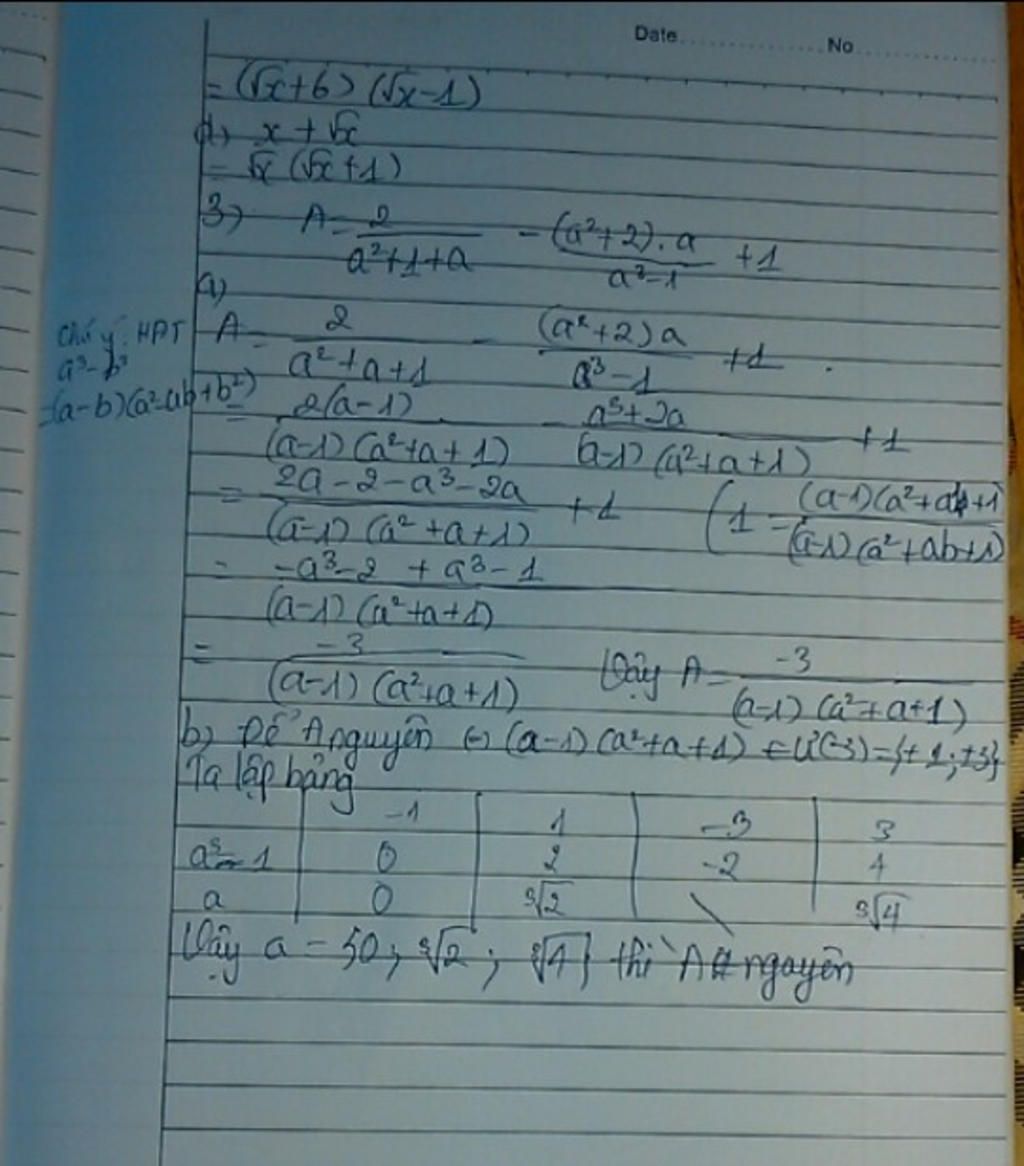 Date No
= (√x+6) (√x-1)
d) x + √x
= √x (√x+1)
3) A = 2/(a²+1+a) - (a²+2).a/(a³-1) +1
a)
Chú ý: HĐT
a³-b³
=(a-b)(a²+ab+b²)
A = 2/(a²+a+1) - (a²+2)a/(a³-1) +1
= 2(a-1)/((a-1)(a²+a+1)) - (a³+2a)/((a-1)(a²+a+1)) +1
= (2a-2-a³-2a)/((a-1)(a²+a+1)) +1 (1 = (a-1)(a²+a+1)/((a-1)(a²+ab+1)
= (-a³-2+a³-1)/((a-1)(a²+a+1))
= -3/((a-1)(a²+a+1)) Vậy A = -3/((a-1)(a²+a+1))
b) Để A nguyên ⇔ (a-1)(a²+a+1) ∈ Ư(-3)={±1;±3}
Ta lập bảng
-1 1 -3 3
a³-1 0 2 -2 4
a 0 ∛2 \ ∛4
Vậy a = {0; ∛2; ∛4} thì A nguyên